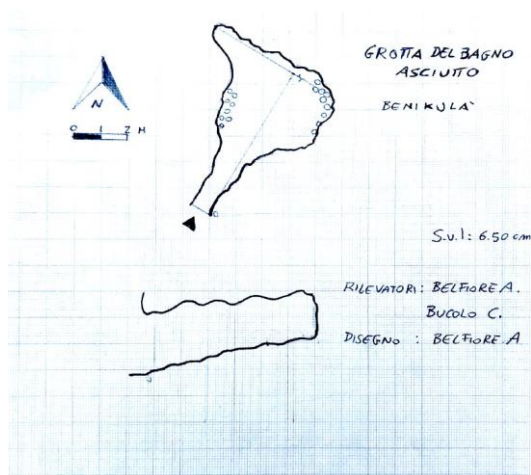 GROTTA DEL BAGNO
ASCIUTTO
BENIKULÀ
N
0 1 2 M
S.v.l: 6.50 cm
RILEVATORI: BELFIORE A.
BUCOLO C.
DISEGNO : BELFIORE.A